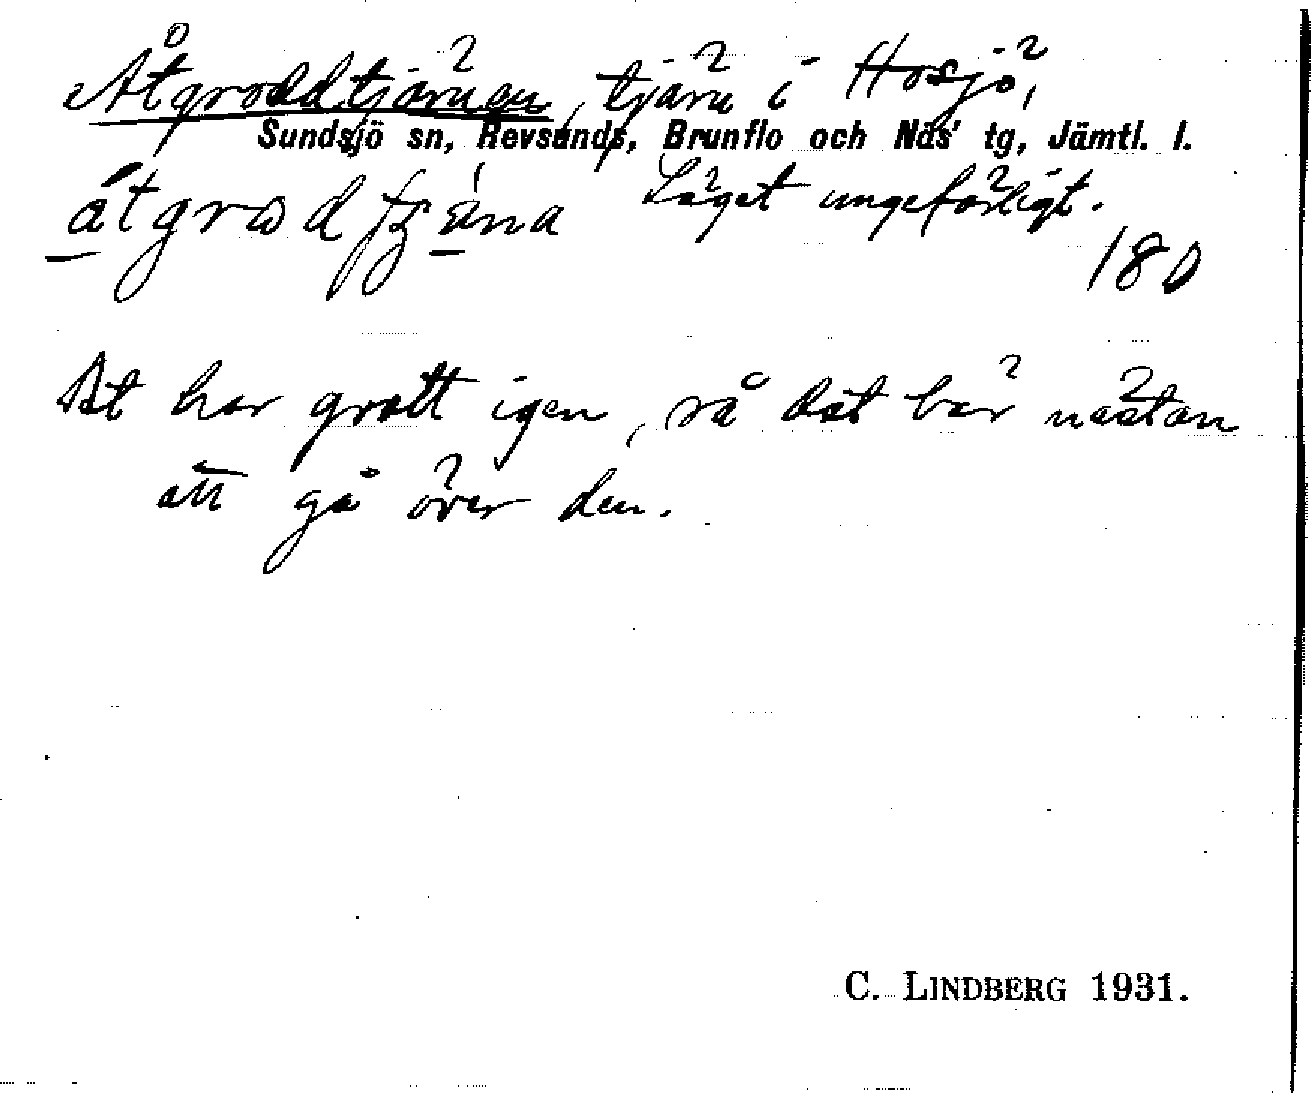 Åtgroddtjärnen, tjärn i Hosjö,
Sundsjö sn, Revsunds, Brunflo och Näs' tg, Jämtl. l.
Läget ungefärligt.
180
Det har grott igen, så det bär nästan
att gå över den.
C. LINDBERG 1931.